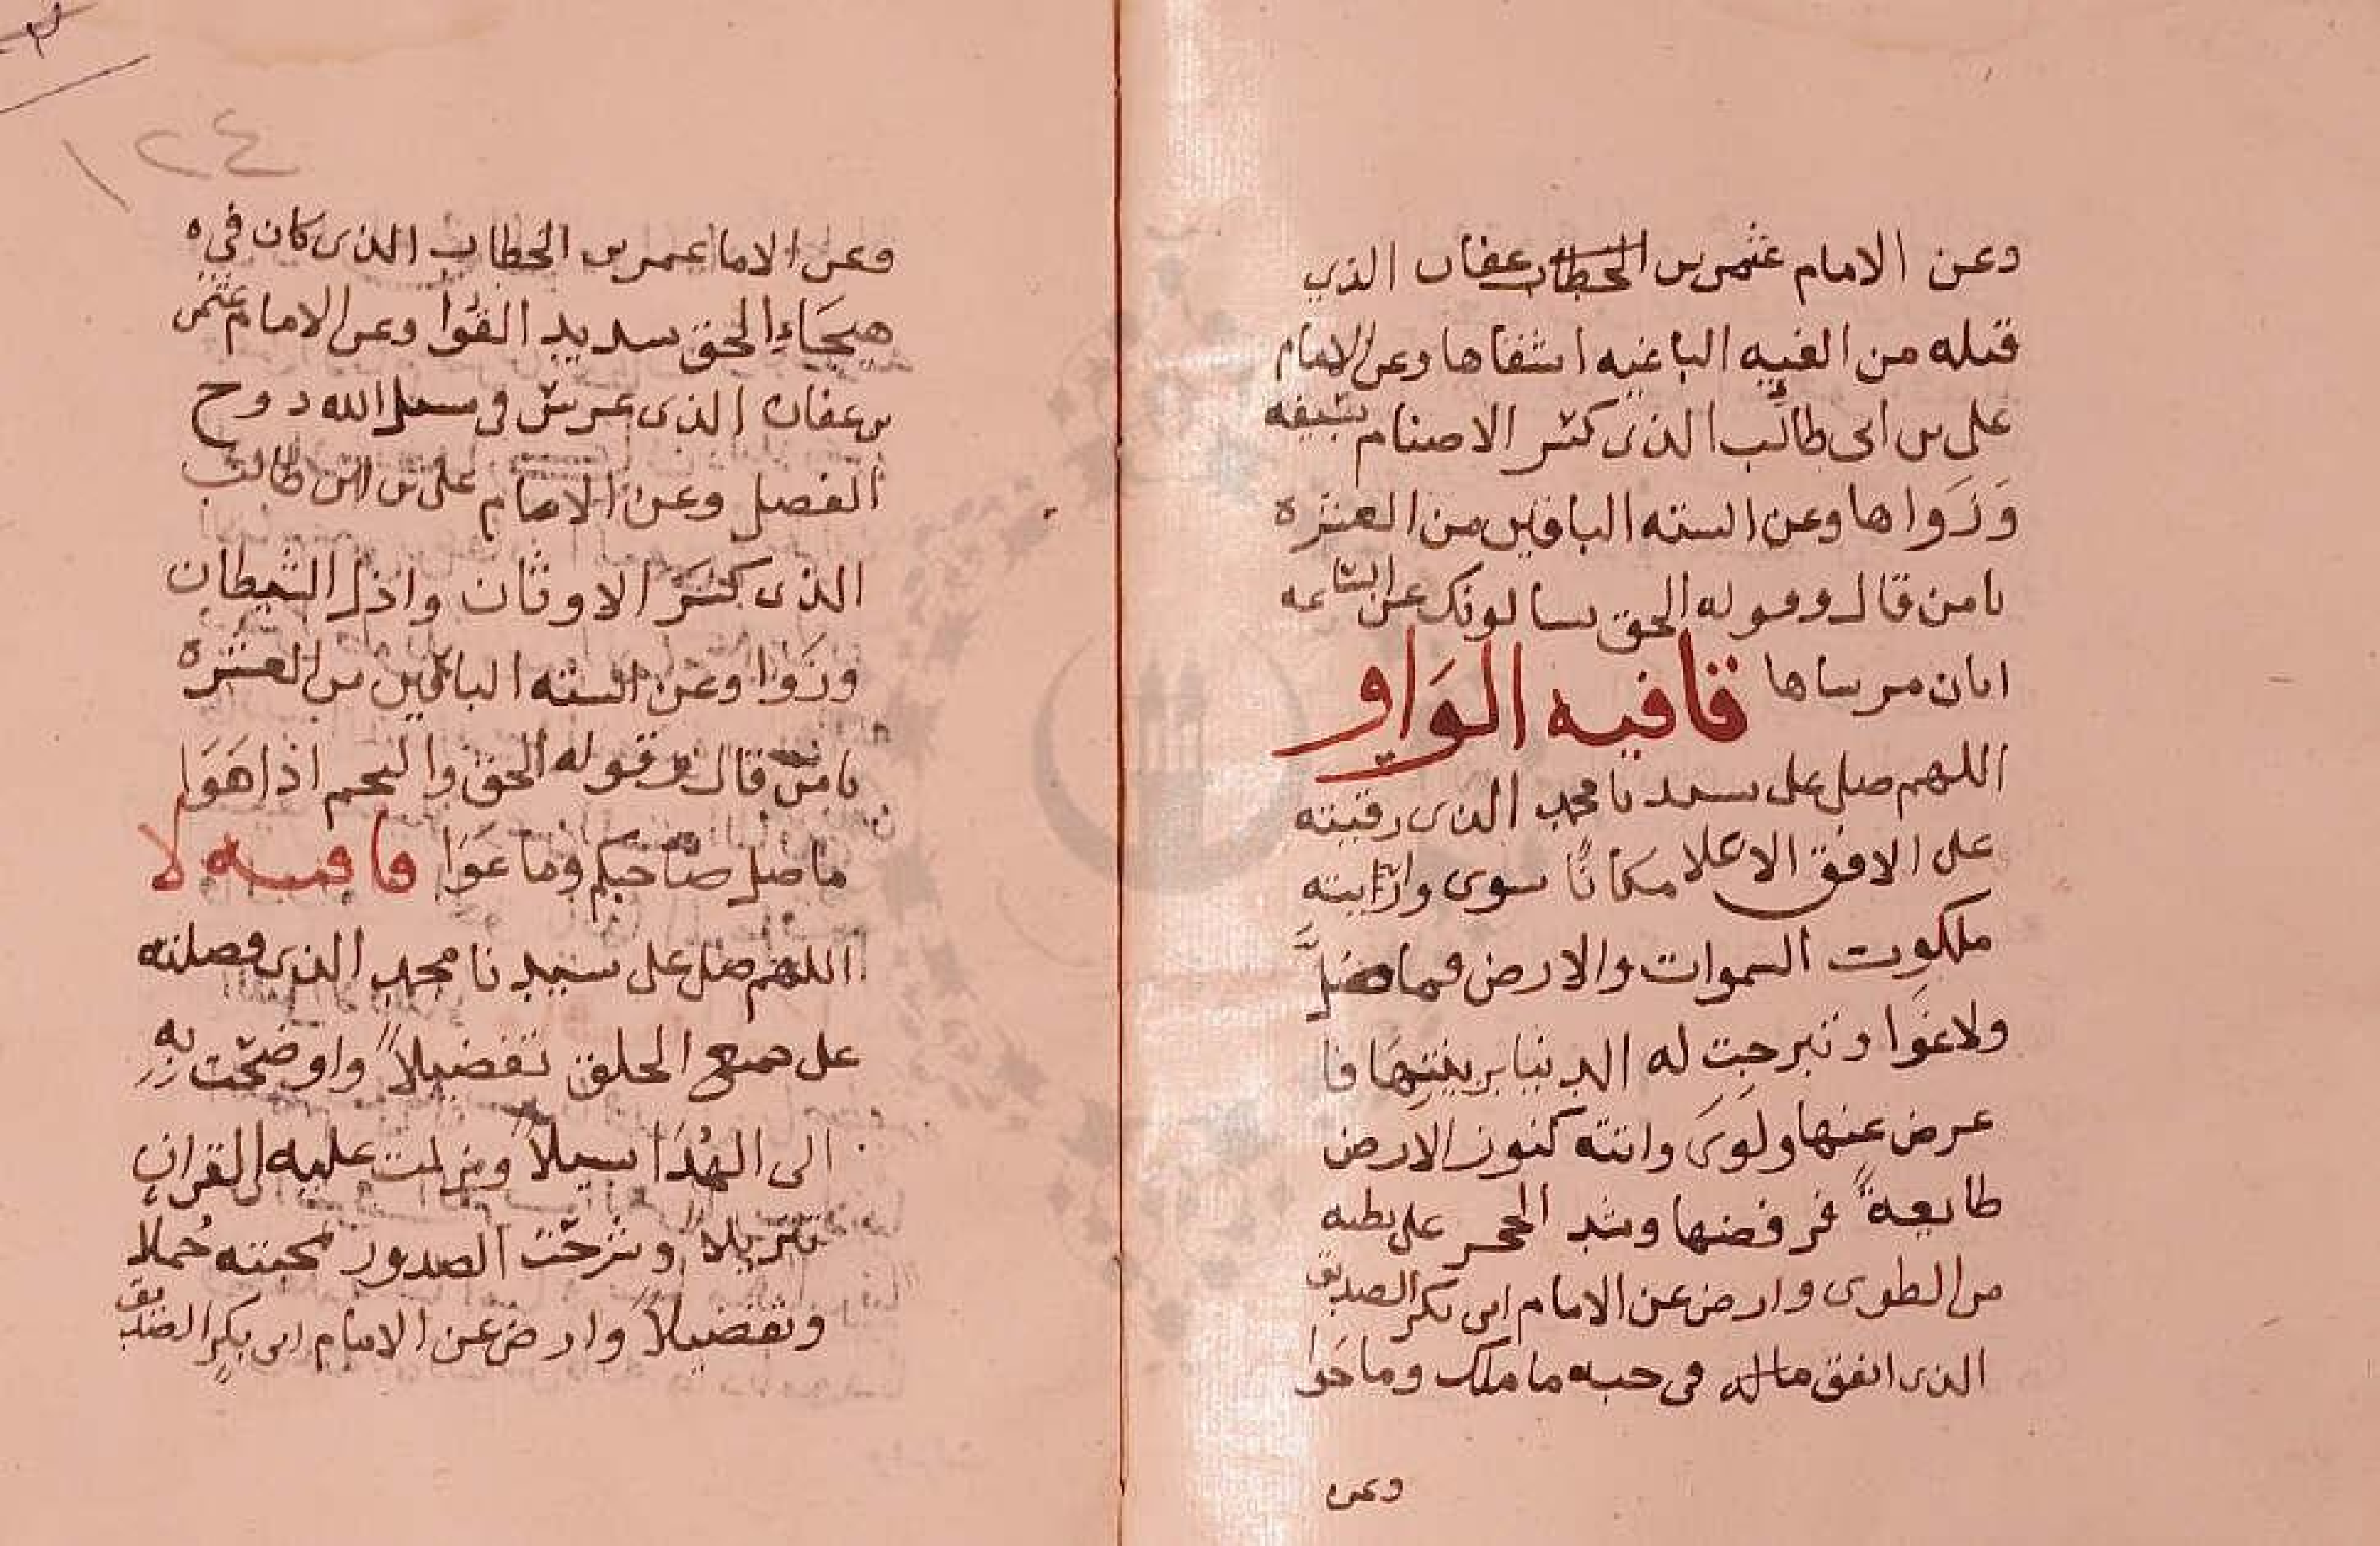 وعن الامام عثمن بن الخطاب عفان الذي
قتله من الفيه الباغيه اشقاها وعن الامام
على بن ابى طالب الذى كسر الاصنام بسيفه
وزواها وعن السته الباقين من العشره
يامن قال وقوله الحق يسالونك عن الساعه
ايان مرساها قافيه الواو
اللهم صل على سيدنا محمد الذى رقيته
على الافق الاعلا مكانًا سوى واراىيته
ملكوت السموات والارض فما ضلَّ
ولا غوا وتبرجت له الدنيا بزينتها فا
عرض عنها ولوى واتته كنوز الارض
طايعةً فرفضها وشد الحجر على بطنه
من الطوى وارض عن الامام ابى بكر الصديق
الذى انفق ماله فى حبه ما ملك وما حوا
وعن
١٢٤
وعن الاما عمر بن الخطاب الذى كان فى
هيجاء الحق سديد القوا وعن الامام عثمن
بن عفان الذى عرس فى سبيل الله دوح
الفضل وعن الامام على بن ابى طالب
الذى كسر الاوثان واذل الشيطان
وزوا وعن السته الباقين من العشره
يامن قال وقوله الحق والنجم اذا هوا
ما ضل صاحبكم وما غوا قافيه لا
اللهم صل على سيدنا محمد الذى فضلته
على جميع الخلق تفضيلاً واوضحت به
الى الهدا سبيلاً ونزلت عليه القران
تنزيلا وشرحت الصدور لمحبته جملا
وتفضيلاً وارض عن الامام ابى بكر الصديق